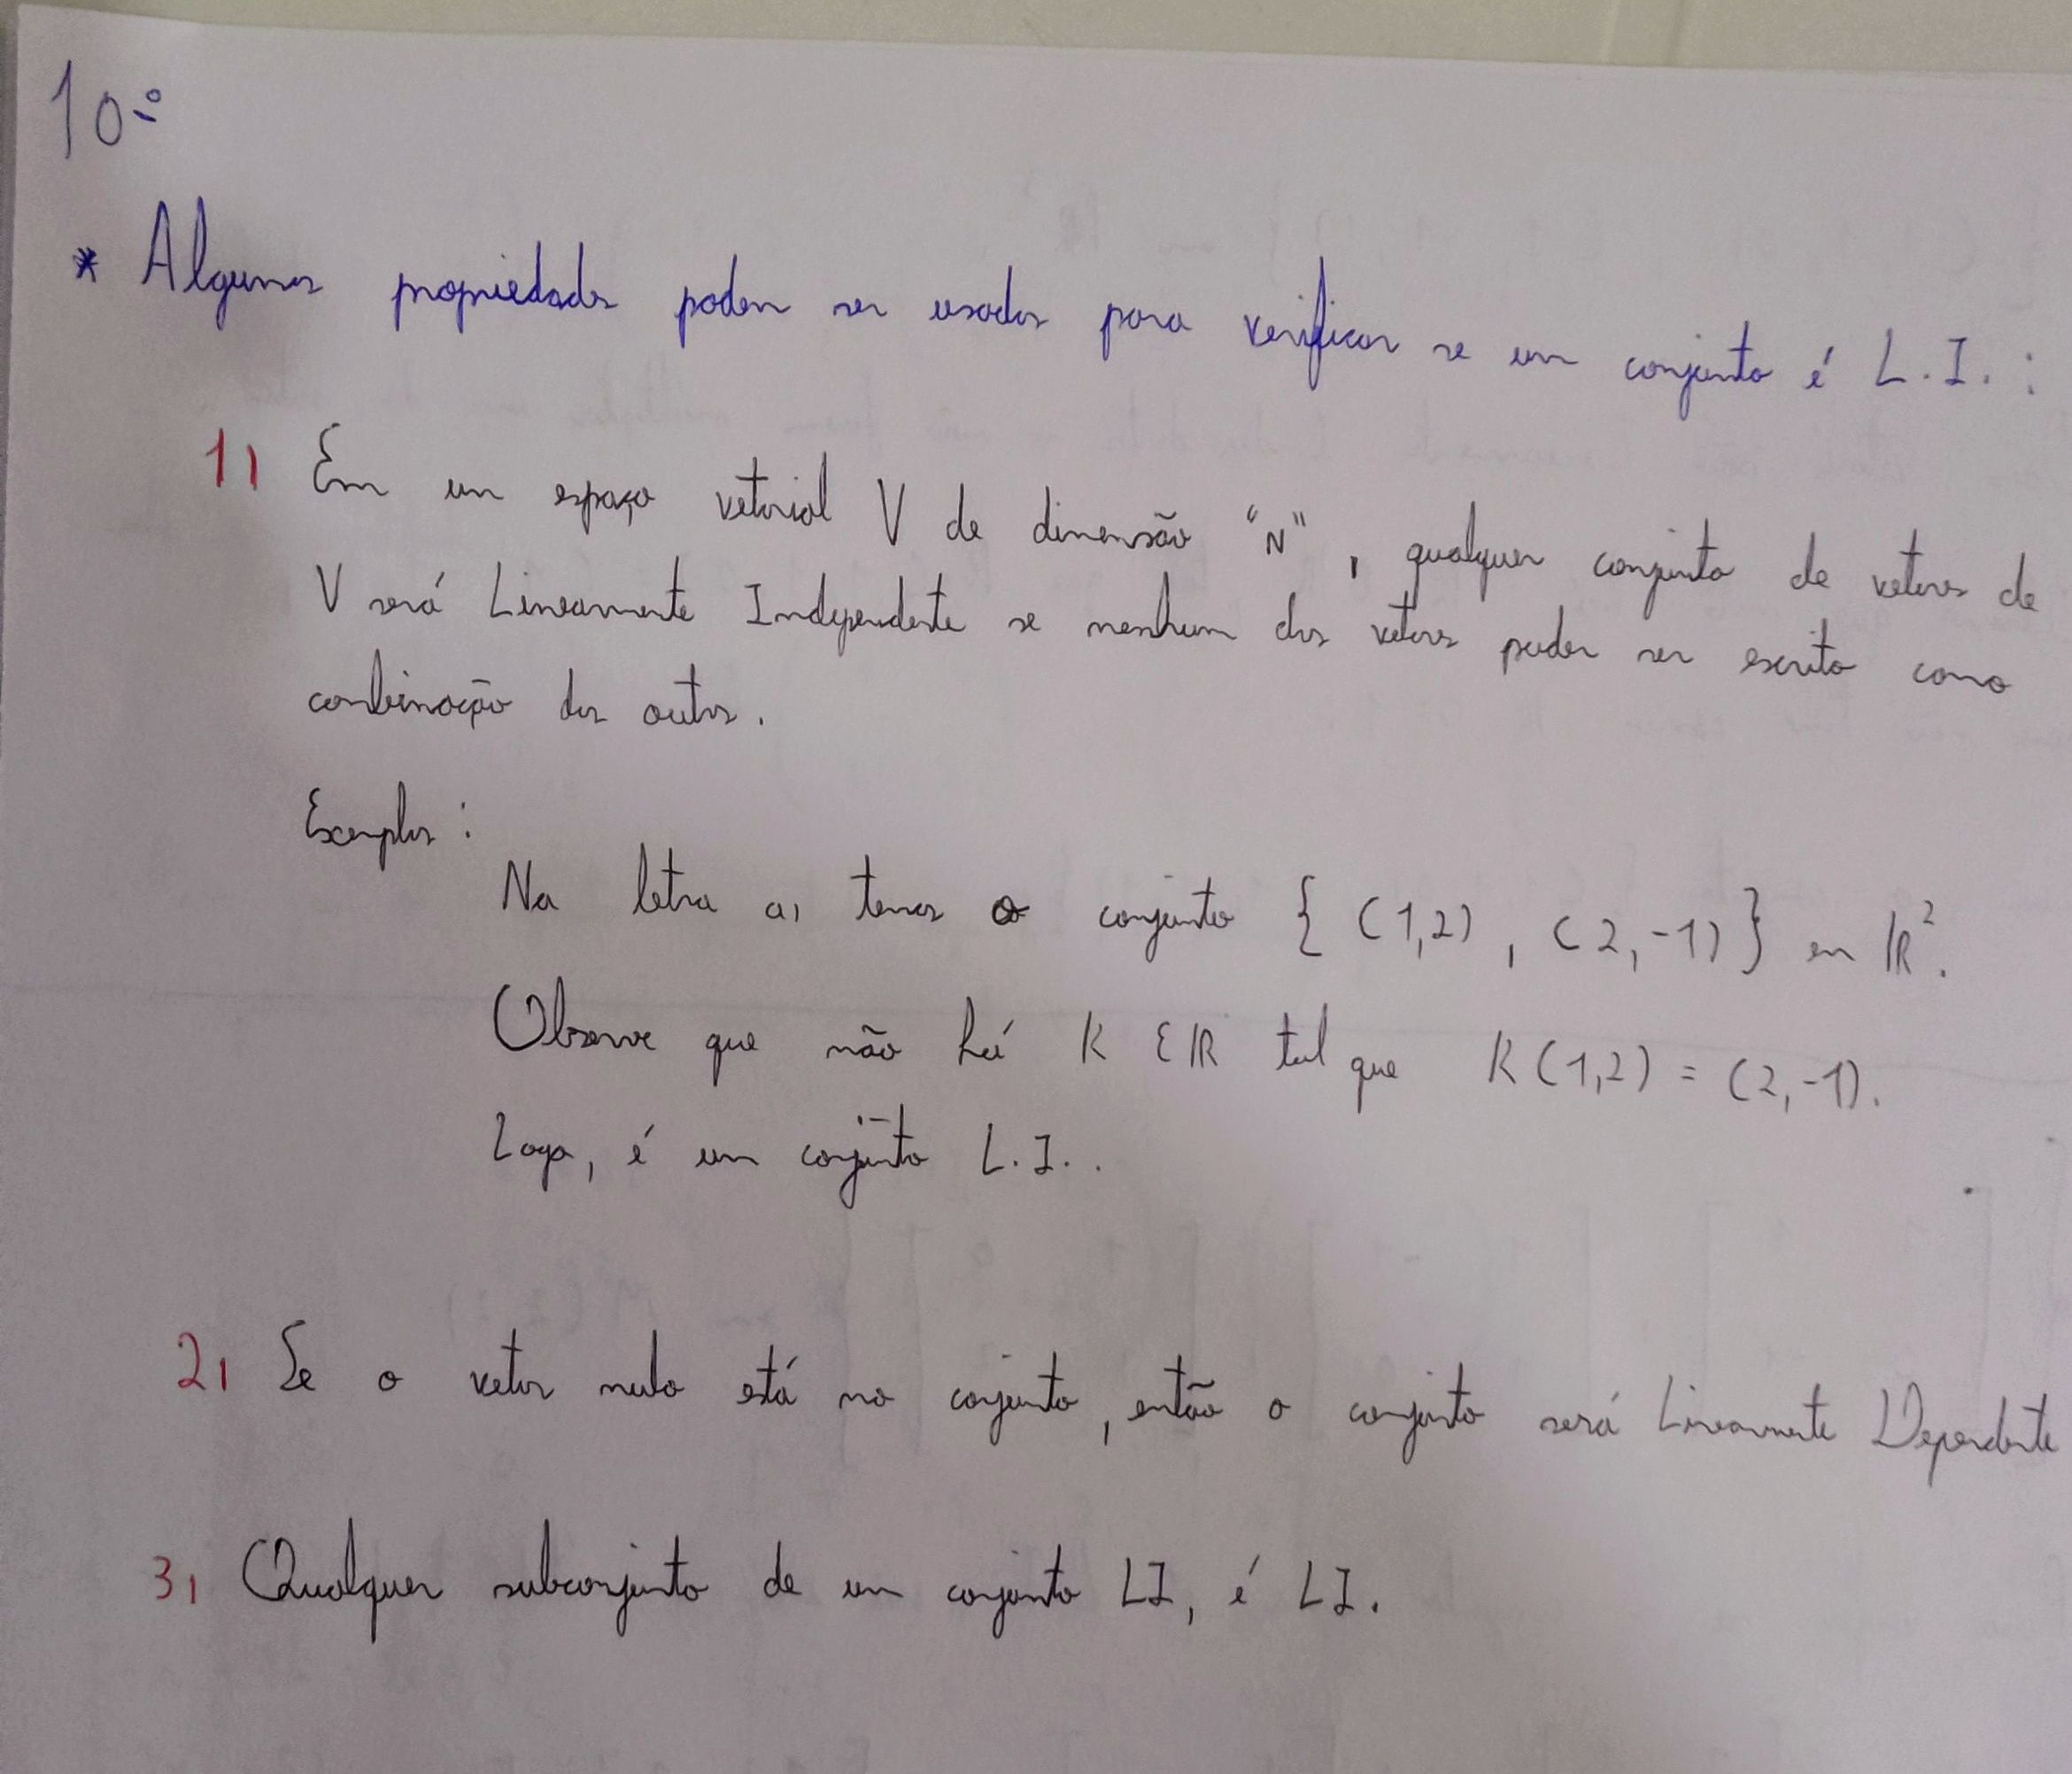 10:
* Algumas propriedades podem ser usadas para verificar se um conjunto é L.I. :
1) Em um espaço vetorial V de dimensão "N", qualquer conjunto de vetores de
V será Linearmente Independente se nenhum dos vetores puder ser escrito como
combinação dos outros.
Exemplos :
Na letra a) temos o conjunto { (1,2) , (2,-1) } em ℝ².
Observe que não há K ∈ ℝ tal que K(1,2) = (2,-1).
Logo, é um conjunto L.I..
2) Se o vetor nulo está no conjunto, então o conjunto será Linearmente Dependente
3) Qualquer subconjunto de um conjunto LI, é LI.